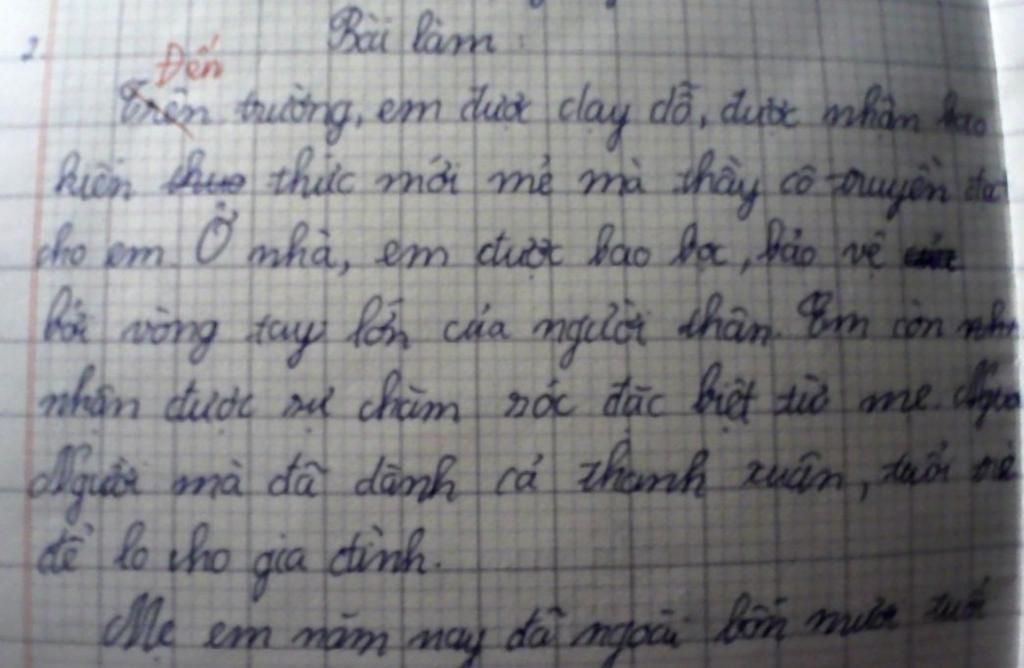 2.
Bài làm:
Đến
Trên trường, em được dạy dỗ, được nhận bao
kiến thức mới mẻ mà thầy cô truyền đạt
cho em. Ở nhà, em được bao bọc, bảo vệ
bởi vòng tay lớn của người thân. Em còn
nhận được sự chăm sóc đặc biệt từ mẹ.
Người mà đã dành cả thanh xuân, tuổi trẻ
để lo cho gia đình.
Mẹ em năm nay đã ngoài bốn mươi tuổi